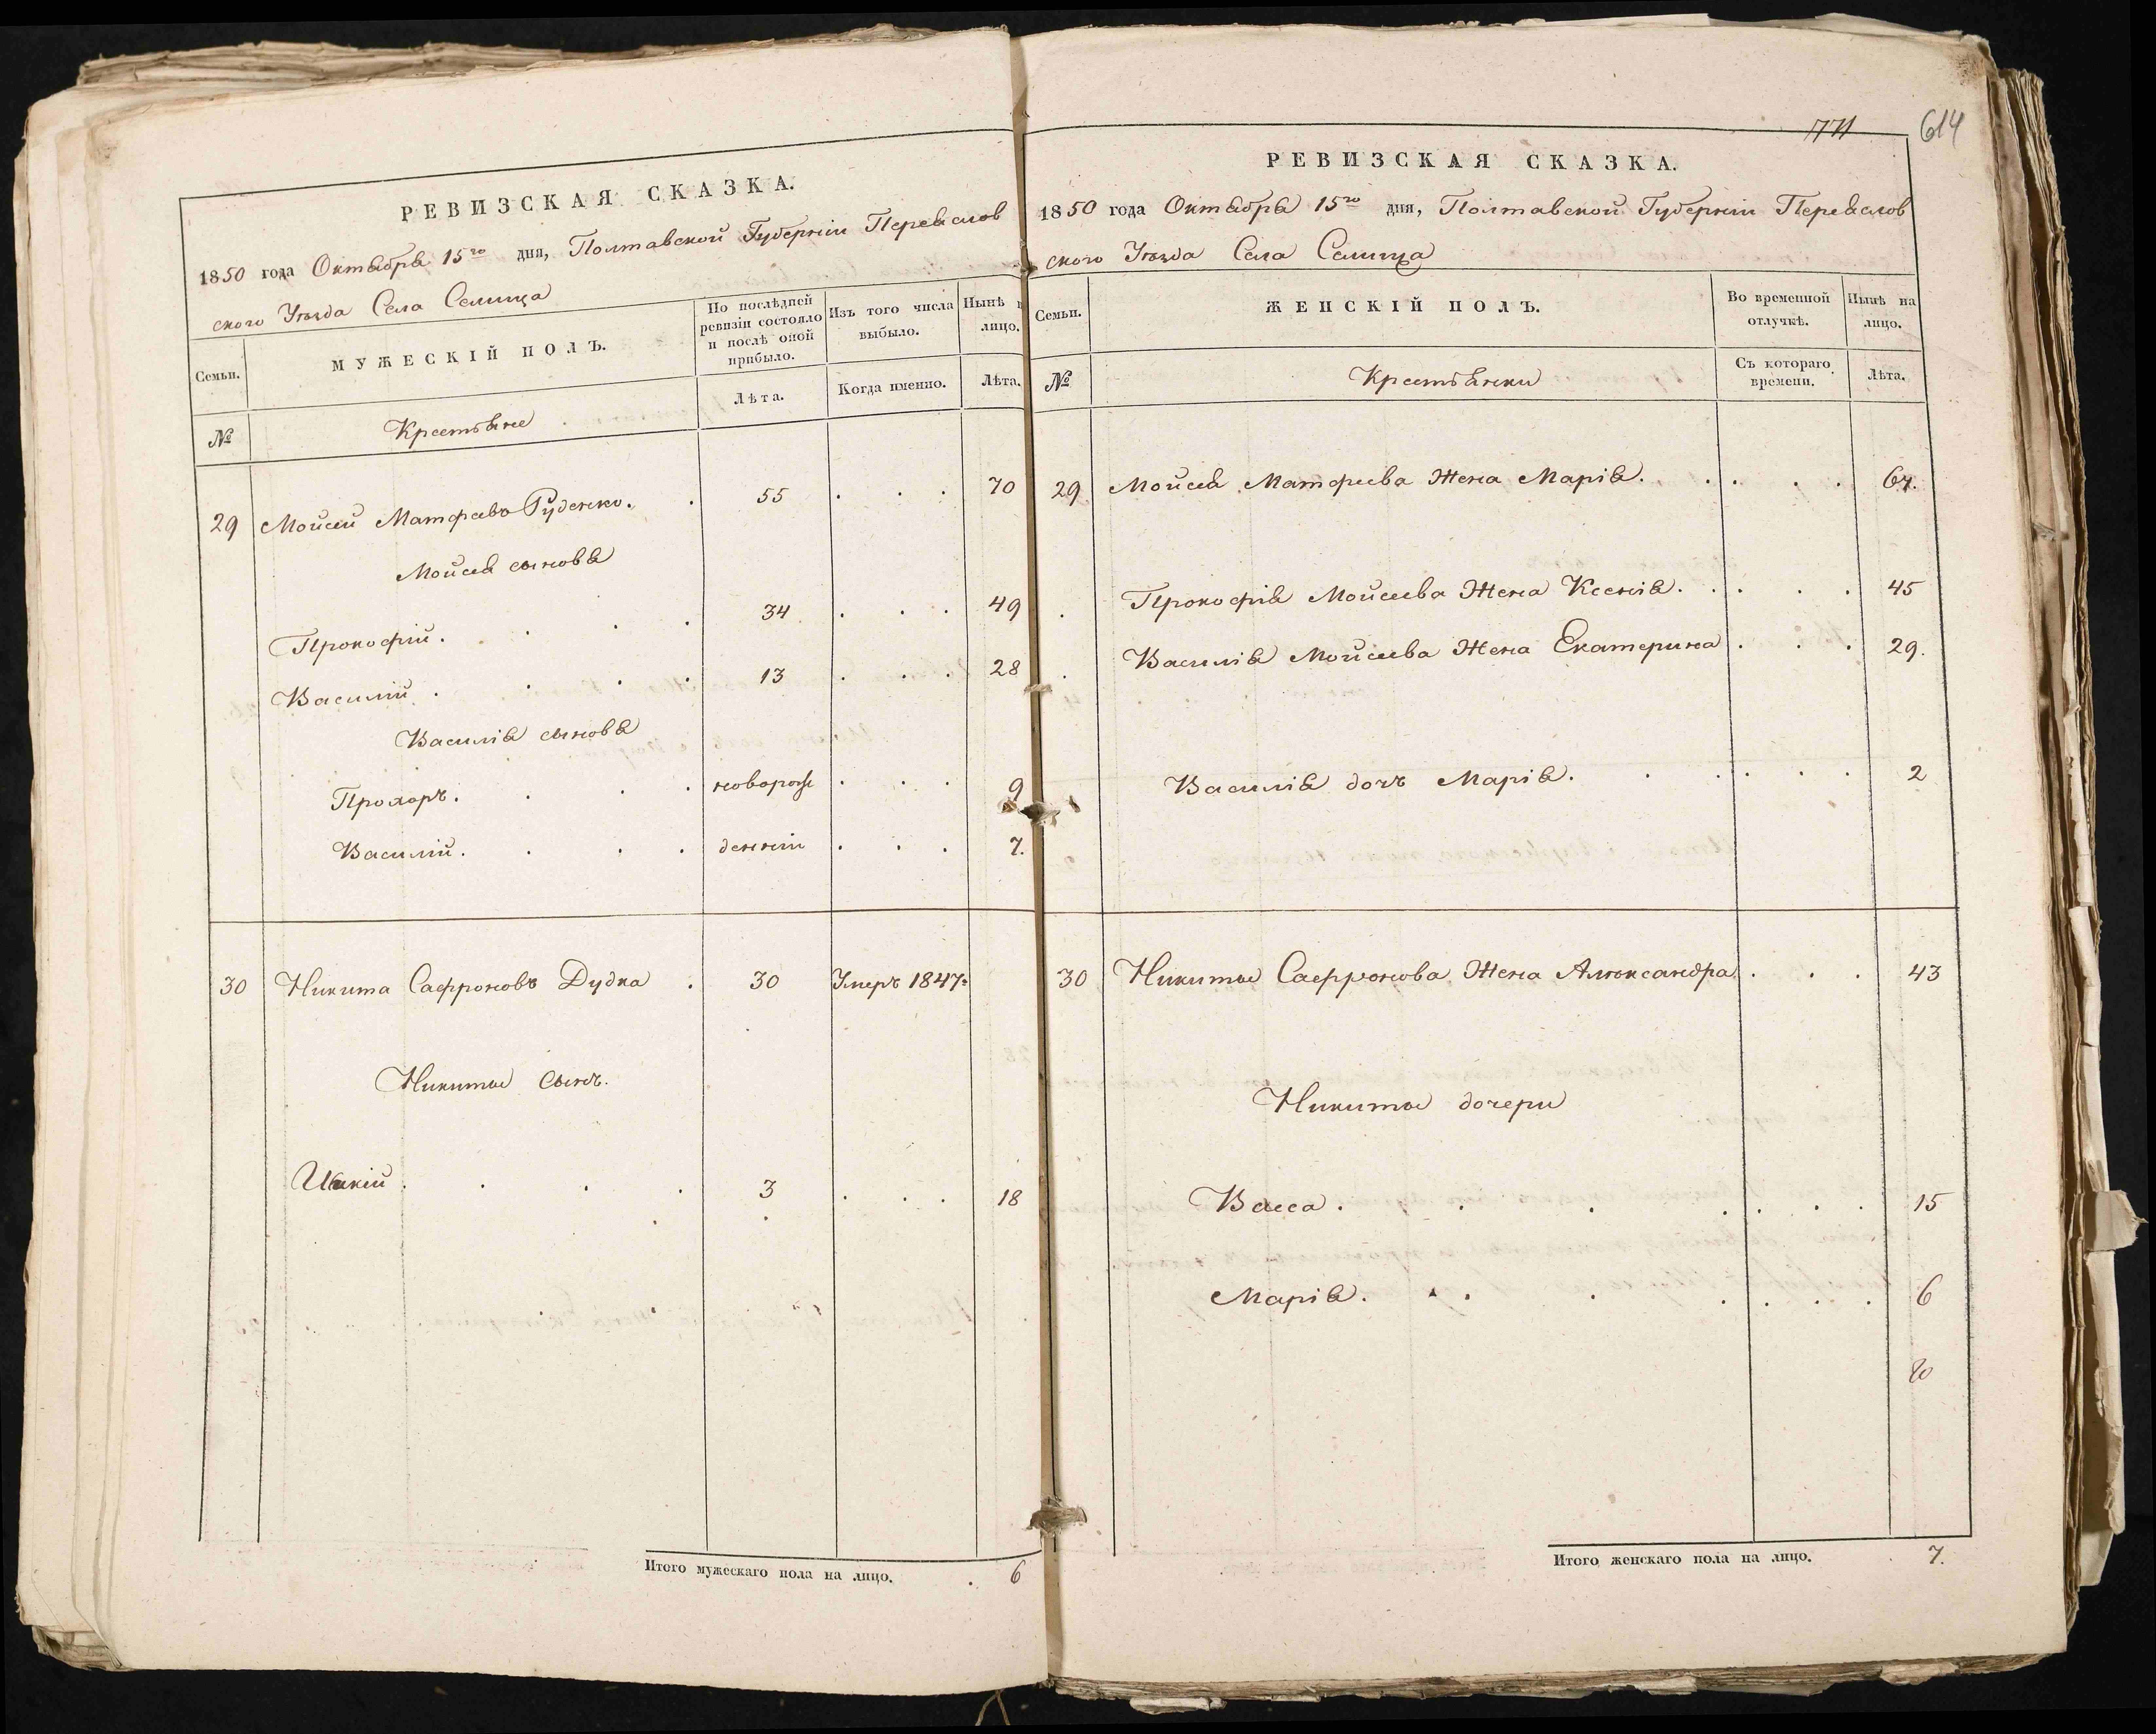 РЕВИЗСКАЯ СКАЗКА.
1850 года Октября 15го дня, Полтавской Губернiи Переяслов
ского Уѣзда Села Селища
Семьи.
МУЖЕСКIЙ ПОЛЪ.
По послѣдней ревизiи состояло и послѣ оной прибыло.
Изъ того числа выбыло.
Нынѣ
лицо.
№
Крестьяне
Лѣта.
Когда именно.
Лѣта.
29 Мойсей Матфеевъ Руденко. 55 70
Мойсея сыновья
Прокофiй. 34 49
Василiй. 13 28
Василiя сыновья
Прохоръ. новорож 9
Василiй. деннiи 7.
30 Никита Сафроновъ Дудка 30 Умеръ 1847:
Никиты Сынъ.
3 18
Итого мужескаго пола на лицо. 6
614
РЕВИЗСКАЯ СКАЗКА.
1850 года Октября 15го дня, Полтавской Губернiи Переяслов
ского Уѣзда Села Селища
Семьи.
ЖЕНСКIЙ ПОЛЪ.
Во временной отлучкѣ.
Нынѣ на лицо.
№
Крестьянки
Съ котораго времени.
Лѣта.
29 Мойсея Матфеева Жена Марiя. 67.
Прокофiя Мойсеева Жена Ксенiя. 45
Василiя Мойсеева Жена Екатерина 29.
Василiя дочь Марiя. 2
30 Никиты Сафронова Жена Александра 43
Никиты дочери
Васса. 15
Марiя. 6
Итого женскаго пола на лицо. 7.